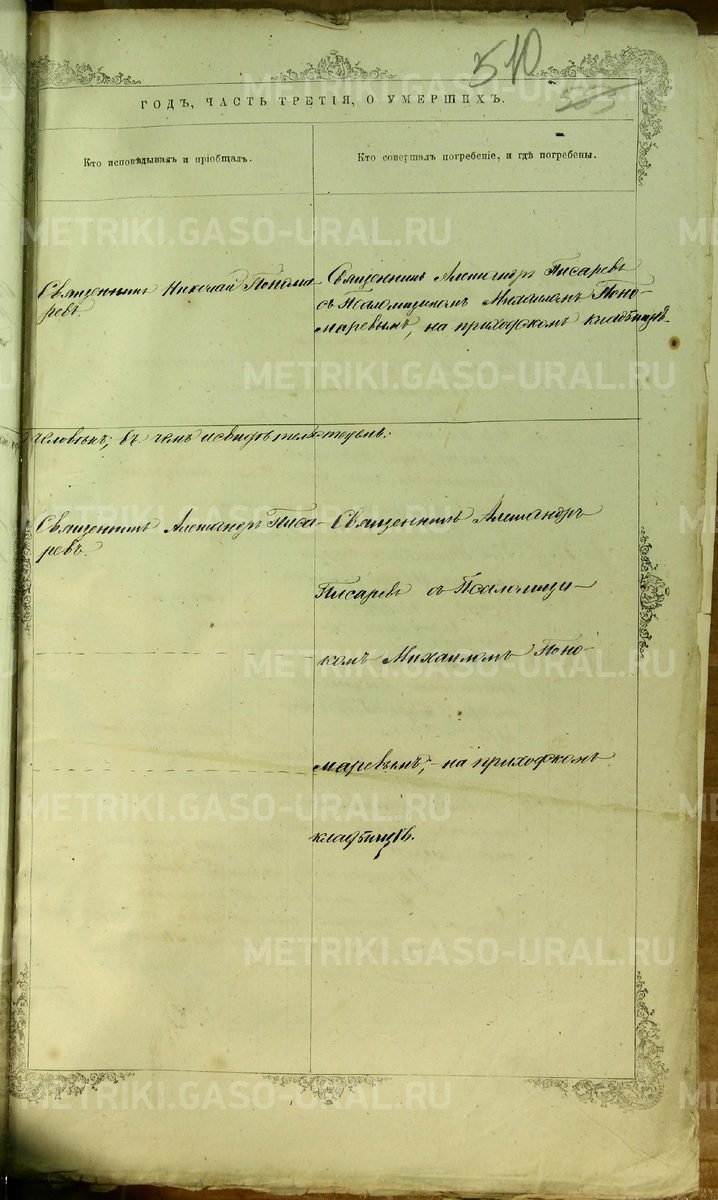 510
553
ГОДЪ, ЧАСТЬ ТРЕТІЯ, О УМЕРШИХЪ.
Кто исповѣдывалъ и пріобщалъ.
Кто совершалъ погребеніе, и гдѣ погребены.
Священникъ Николай Понома-
ревъ.
Священникъ Александръ Писаревъ
съ Псаломщикомъ Михаиломъ Поно-
маревымъ, на приходскомъ кладбищѣ.
человѣкъ; въ чемъ и свидѣтельствуемъ:
Священникъ Александръ Писа-
ревъ.
Священникъ Александръ
Писаревъ съ Псаломщи-
комъ Михаиломъ Поно-
маревымъ, на приходскомъ
кладбищѣ.
METRIKI.GASO-URAL.RU